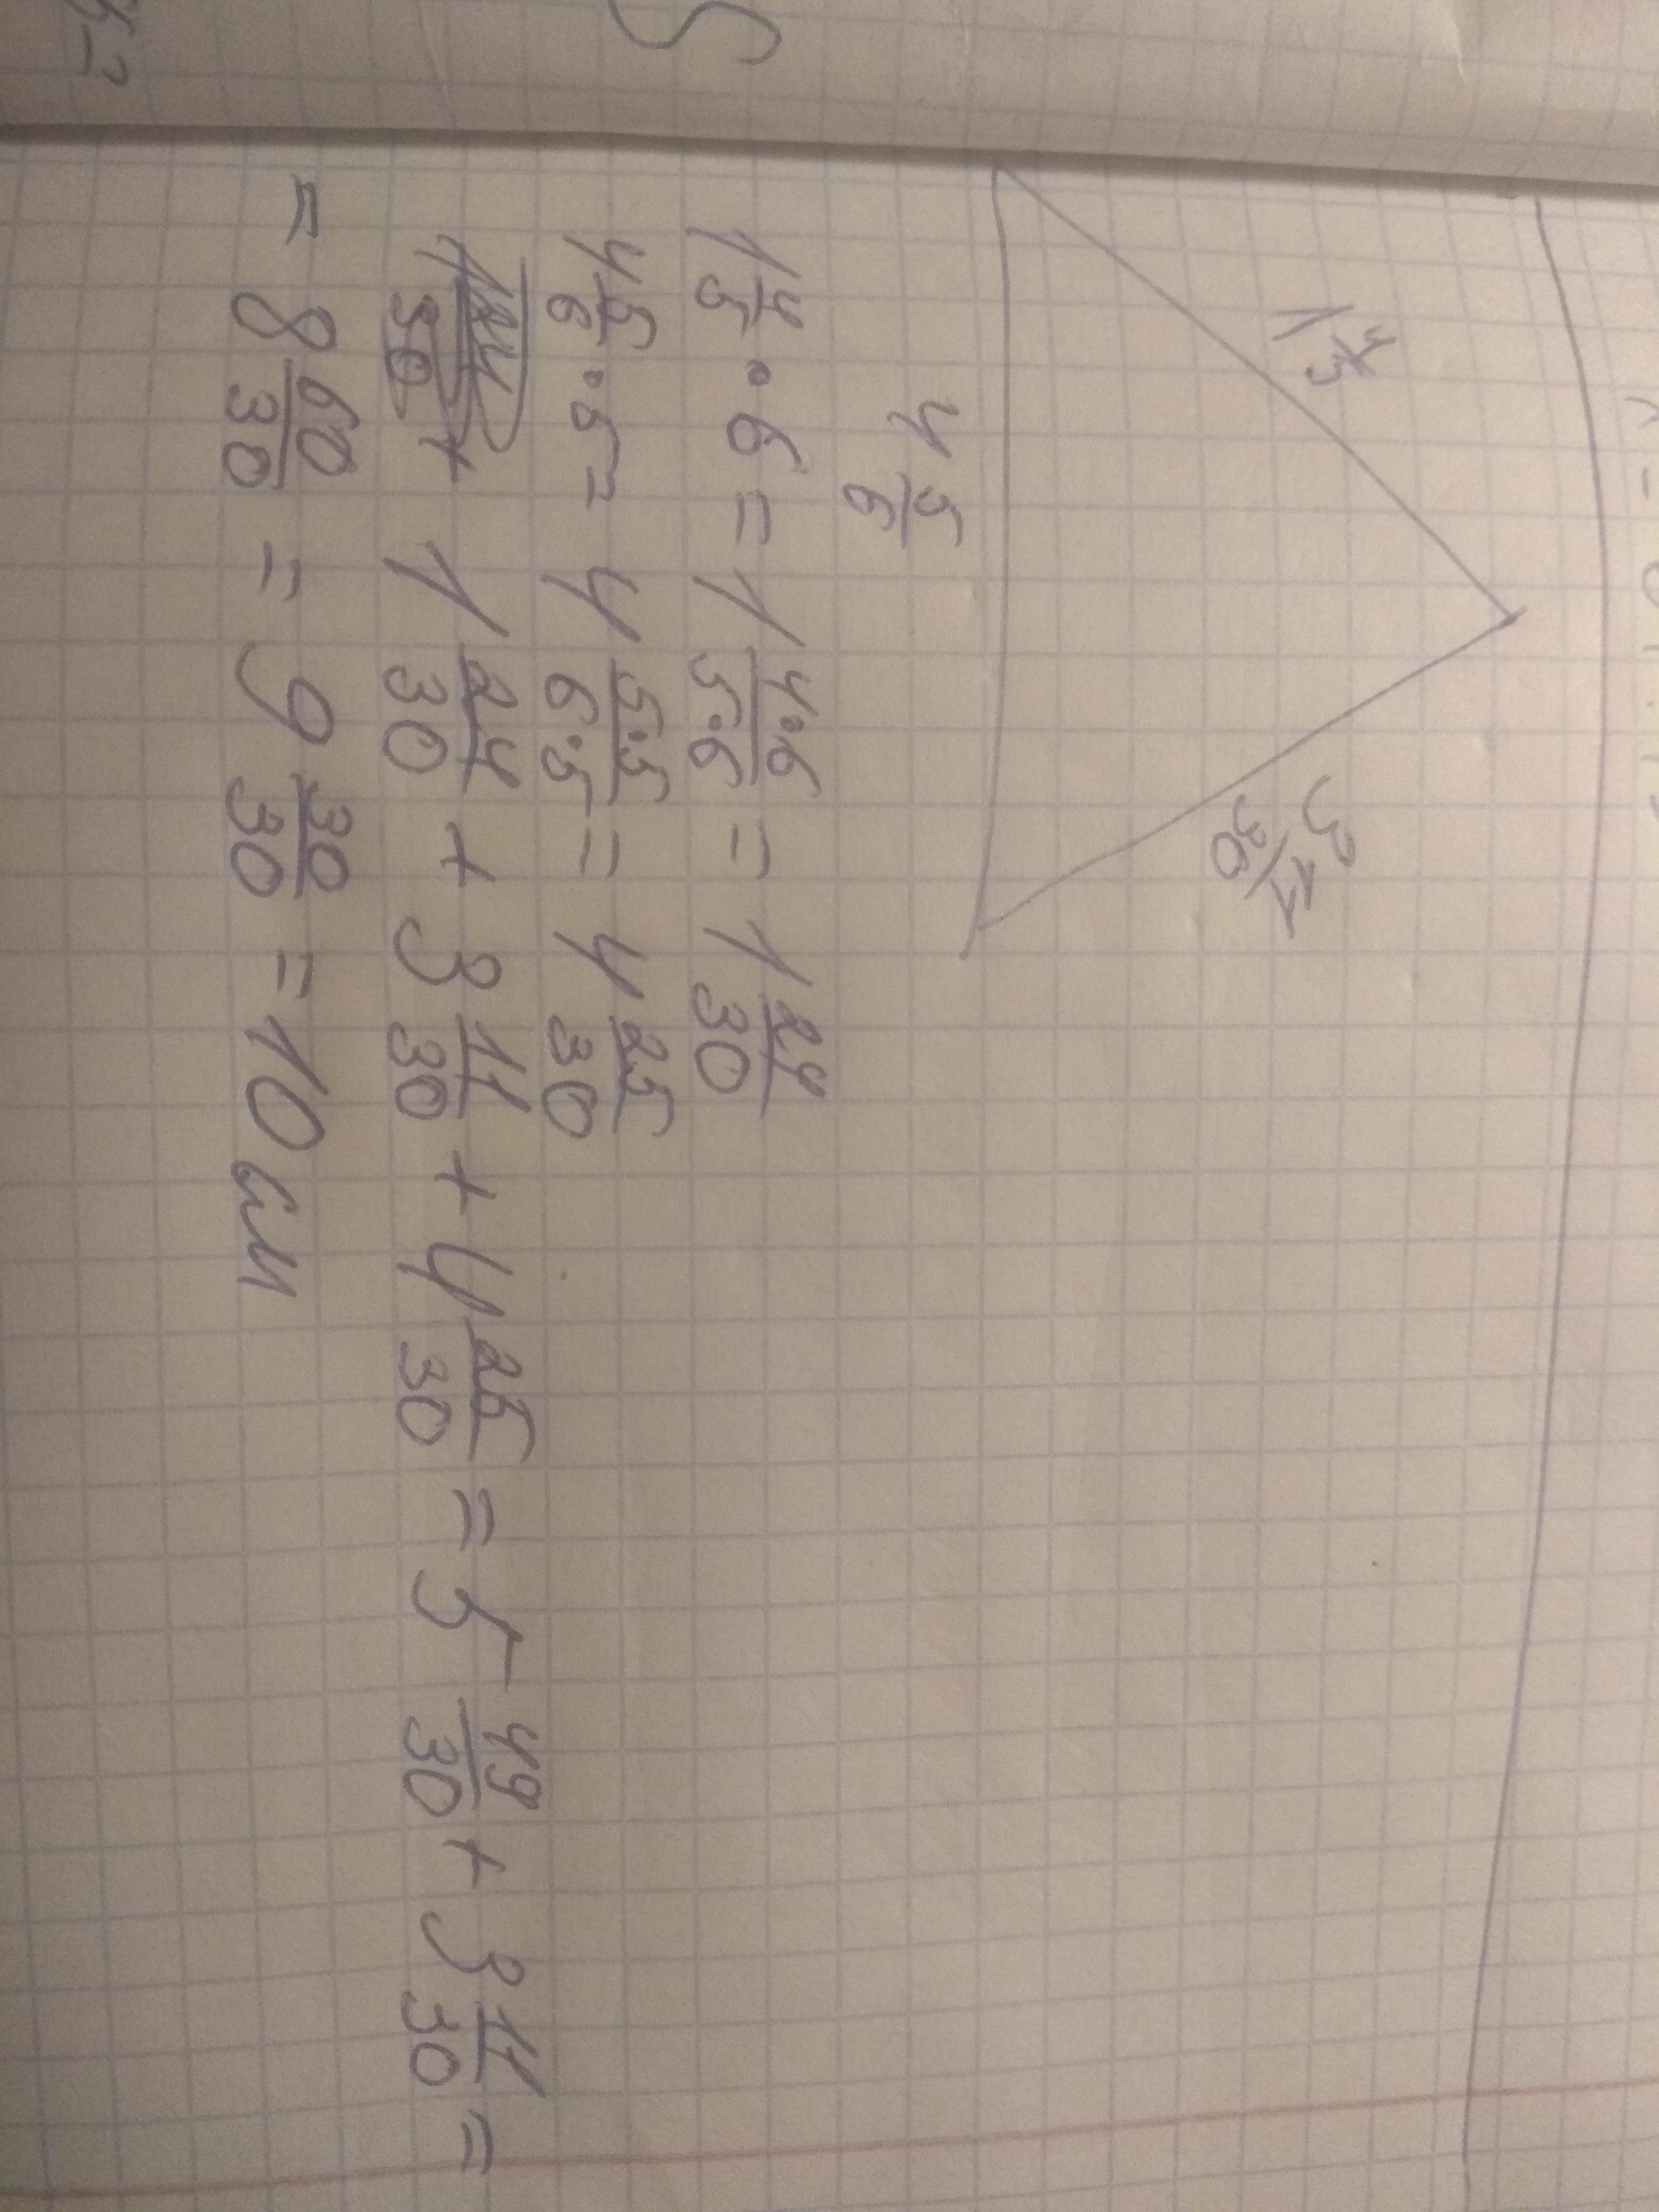 1 4/5
3 11/30
4 5/6
1 4/5 · 6 = 1 4·6/5·6 = 1 24/30
4 5/6 · 5 = 4 5·5/6·5 = 4 25/30
1 24/30 + 3 11/30 + 4 25/30 = 5 49/30 + 3 11/30 =
= 8 60/30 = 9 30/30 = 10 см